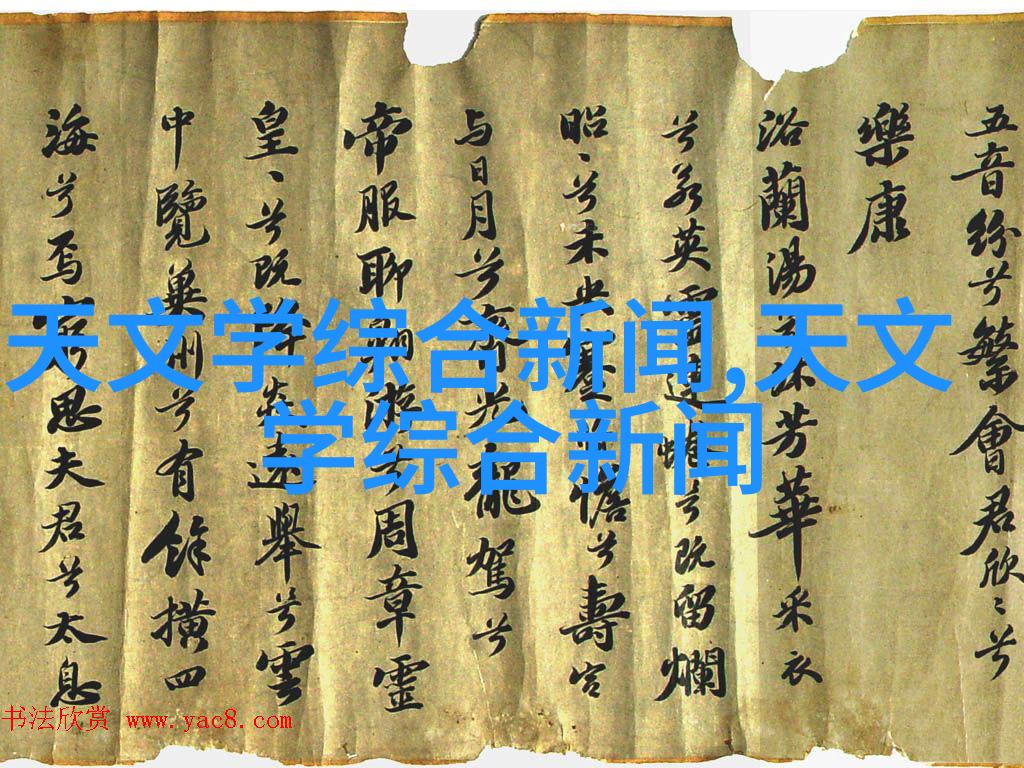 五音紛兮繁會君欣〻兮
樂康
浴蘭湯兮沐芳華采衣
兮若英靈連蜷兮既留爛
昭〻兮未央蹇憺兮壽宮
与日月兮齊光龍駕兮
帝服聊翱遊兮周章靈
皇〻兮既降猋遠舉兮雲
中覽冀州兮有餘橫四
海兮焉窮思夫君兮太息
天文学综合新闻,天文
学综合新闻
书法欣赏 www.yac8.com